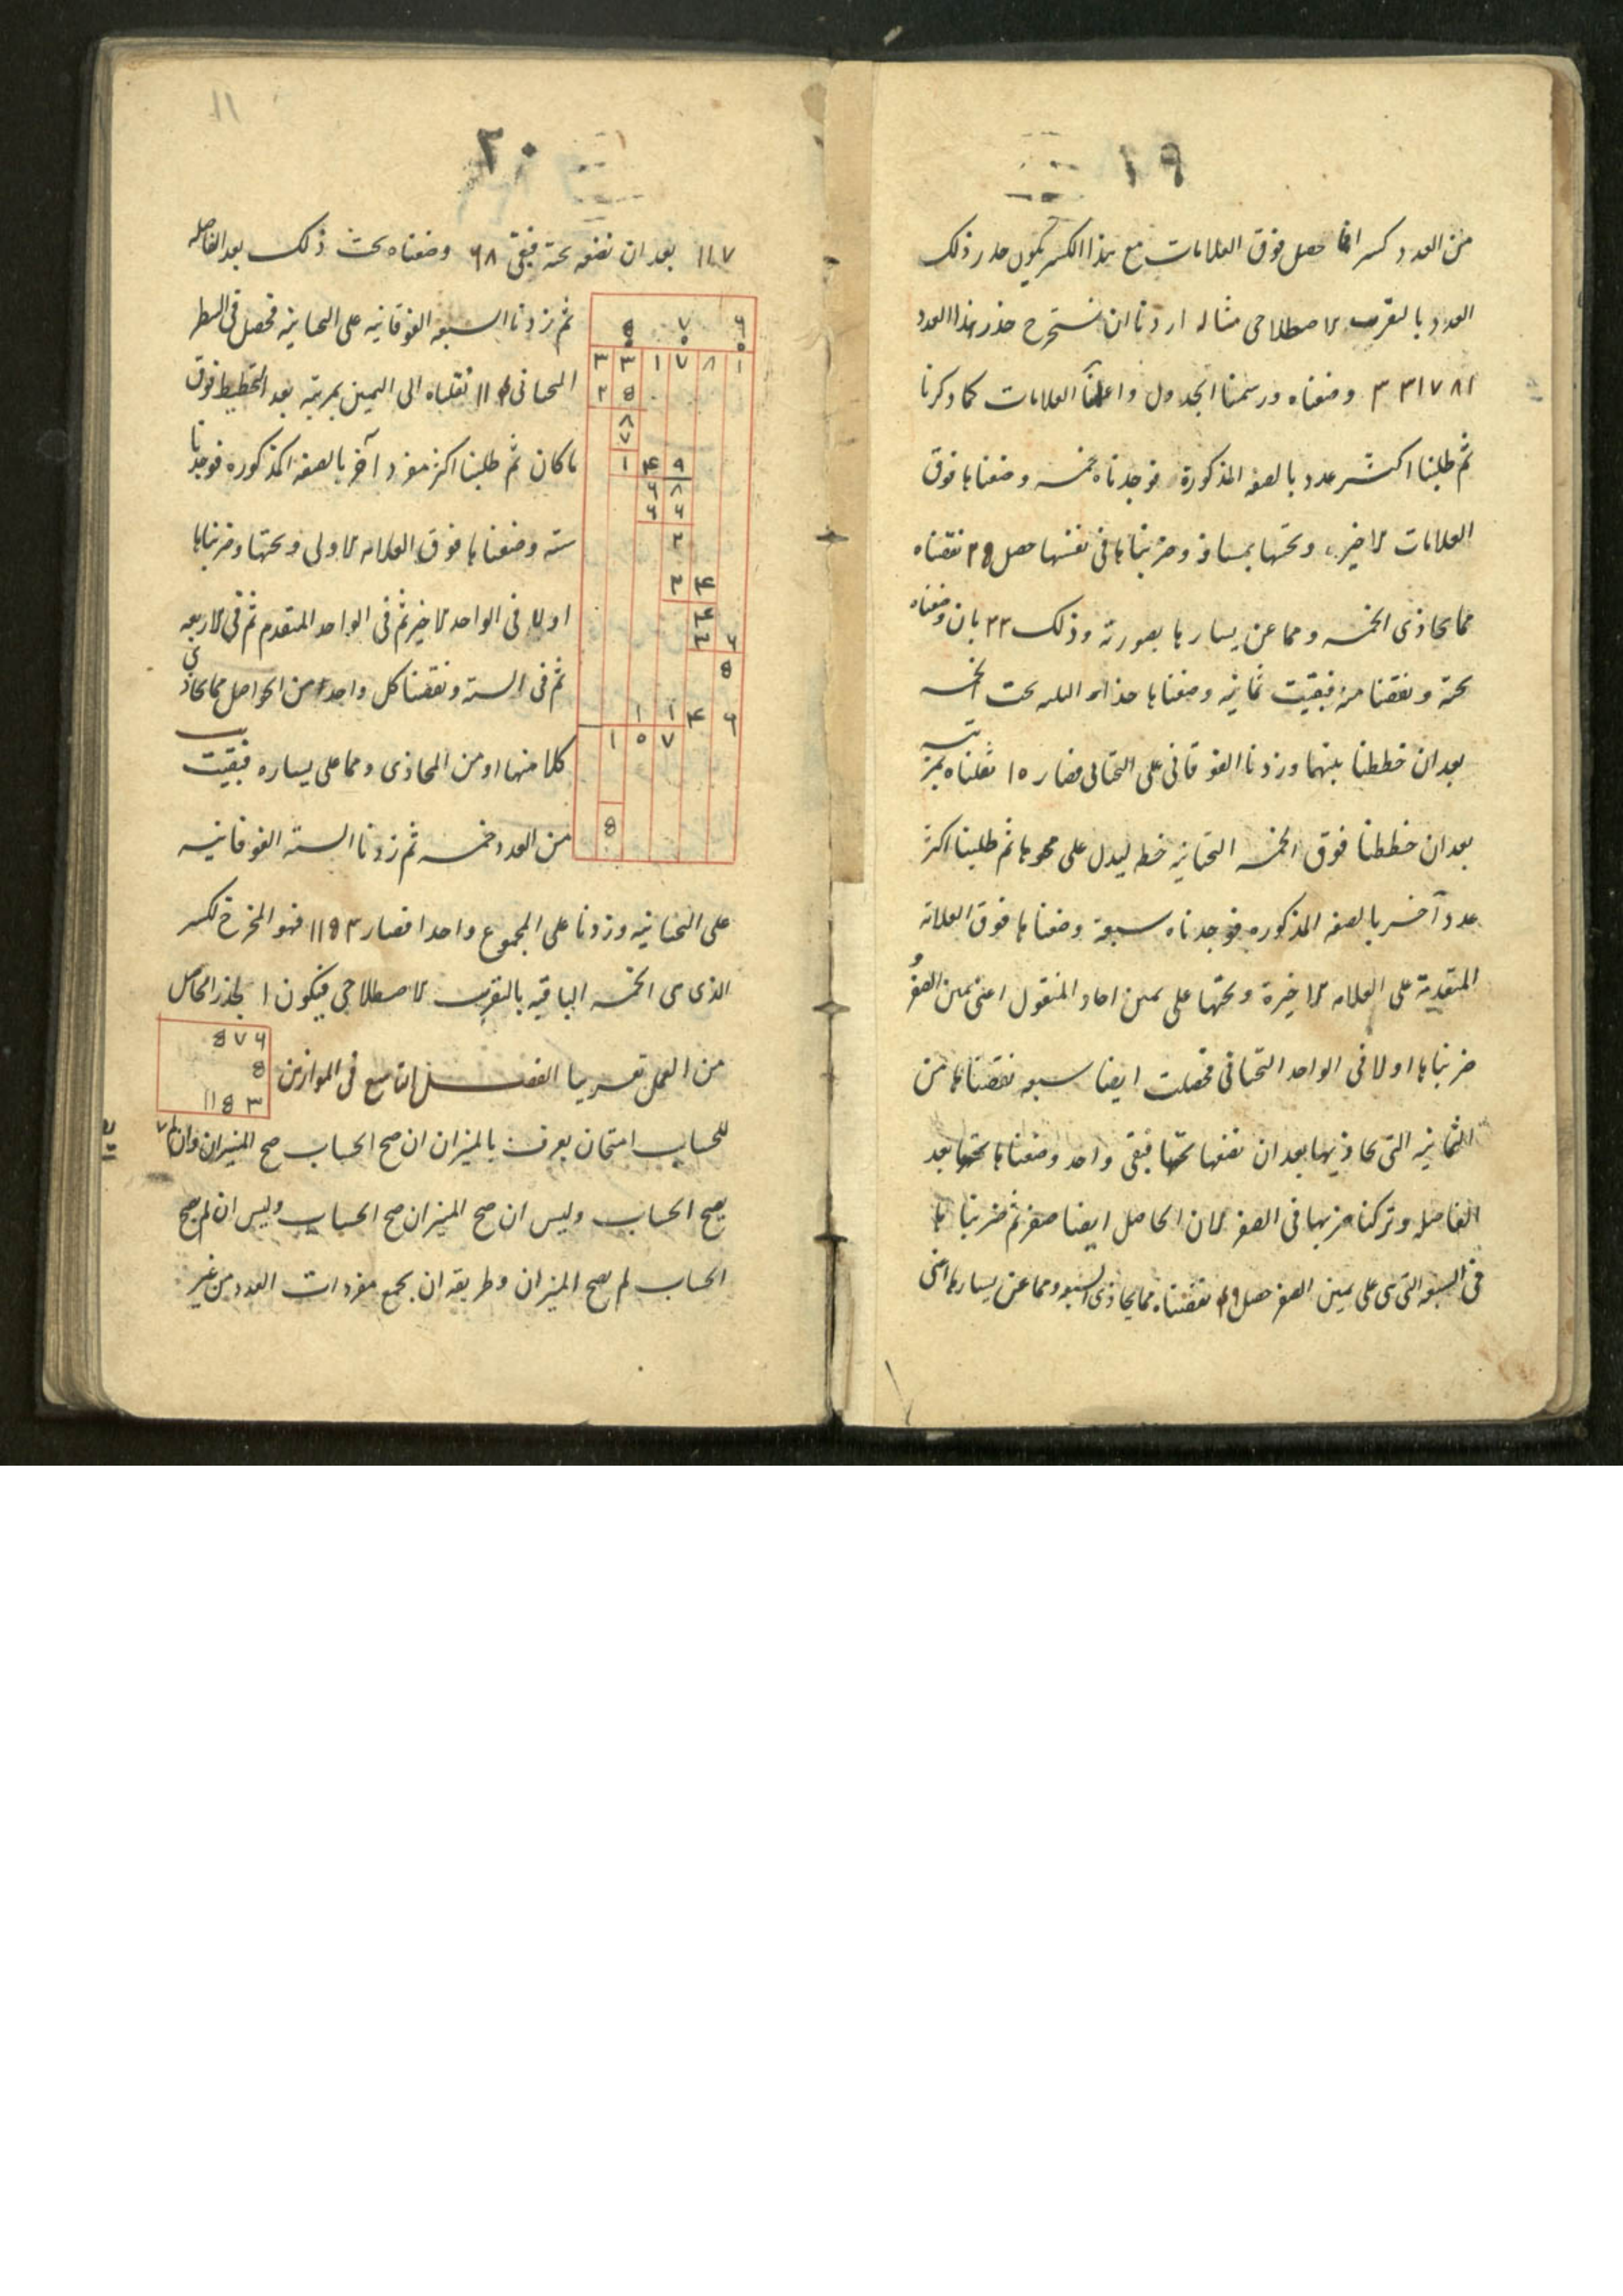 ١٩
من العدد كسر افما حصل فوق العلامات مع هذا الكسر يكون جذر ذلك
العدد بالتقريب الاصطلاحى مثاله اردنا ان نستخرج جذر هذا العدد
٣٣١٧٨١ وضعناه ورسمنا الجدول واعلمنا العلامات كما ذكرنا
ثم طلبنا اكثر عدد بالصفة المذكورة فوجدناه خمسه وضعناها فوق
العلامات الاخيره وتحتها بمسافة وضربناها فى نفسها حصل ٢٥ نقصناه
مما يحاذى الخمسه ومما عن يسارها بصورته وذلك ٣٣ بان وضعناه
تحته ونقصنا منه فبقيت ثمانيه وضعناها تحت الخمسه
بعد ان خططنا بينهما وزدنا الفوقانى على التحتانى فصار ١٠ نقلناه بمرتبته
بعد ان خططنا فوق الخمسه التحتانيه خطه ليدل على محوها ثم طلبنا اكثر
عدد آخر بالصفه المذكوره فوجدناه سبعة وضعناها فوق العلامة
المتقدمة على العلامه الاخيرة وتحتها على يمين احاد المنقول اعنى يمين الصفر و
ضربناها اولا فى الواحد التحتانى فحصلت ايضا سبعه نقصناها من
الثمانيه التى تحاذيها بعد ان نضعها تحتها فبقى واحد وضعناها تحتها بعد
الفاصله وتركنا ضربها فى الصفر لان الحاصل ايضا صفر ثم ضربناها
فى السبعه التى هى على يمين الصفر حصل ٤٩ نقصناه مما يحاذى السبعه ومما عن يسارها اعنى
٢٠
١١٧ بعد ان نضعه تحته فبقى ٦٨ وضعناه تحت ذلك بعد الفاصله
ثم زدنا السبعه الفوقانيه على التحتانيه فحصل فى السطر
التحتانى ١١٤ نقلناه الى اليمين بمرتبه بعد التخطيط فوق
ما كان ثم طلبنا اكثر مفرد آخر بالصفه المذكوره فوجدنا
سته وضعناها فوق العلامه الاولى وتحتها وضربناها
اولا فى الواحد الاخير ثم فى الواحد المتقدم ثم فى الاربعه
ثم فى السته ونقصنا كل واحد من الحواصل مما يحاذى
كلا منها او من المحاذى ومما على يساره فبقيت
من العدد خمسه ثم زدنا السته الفوقانيه
على التحتانيه وزدنا على المجموع واحدا فصار ١١٥٣ فهو المخرج لكسر
الذى هى الخمسه الباقيه بالتقريب الاصطلاحى فيكون الجذر الحاصل
من العمل تقريبا الفصل التاسع فى الموازين
٥٧٦
٥
١١٥٣
للحساب امتحان يعرف بالميزان ان صح الحساب صح الميزان وان لم
يصح الحساب وليس ان صح الميزان صح الحساب وليس ان لم يصح
الحساب لم يصح الميزان وطريقه ان يجمع مفردات العدد من غير
٥ ٧ ٦
٣ ٣ ١ ٧ ٨ ١
٢ ٥
٨
٧
١ ٤ ٩
٦ ٨
٦ ٤
٣
٣ ٤
٤
٣ ٦
٥
١ ١ ٤ ٦
١ ٠ ٧
٥